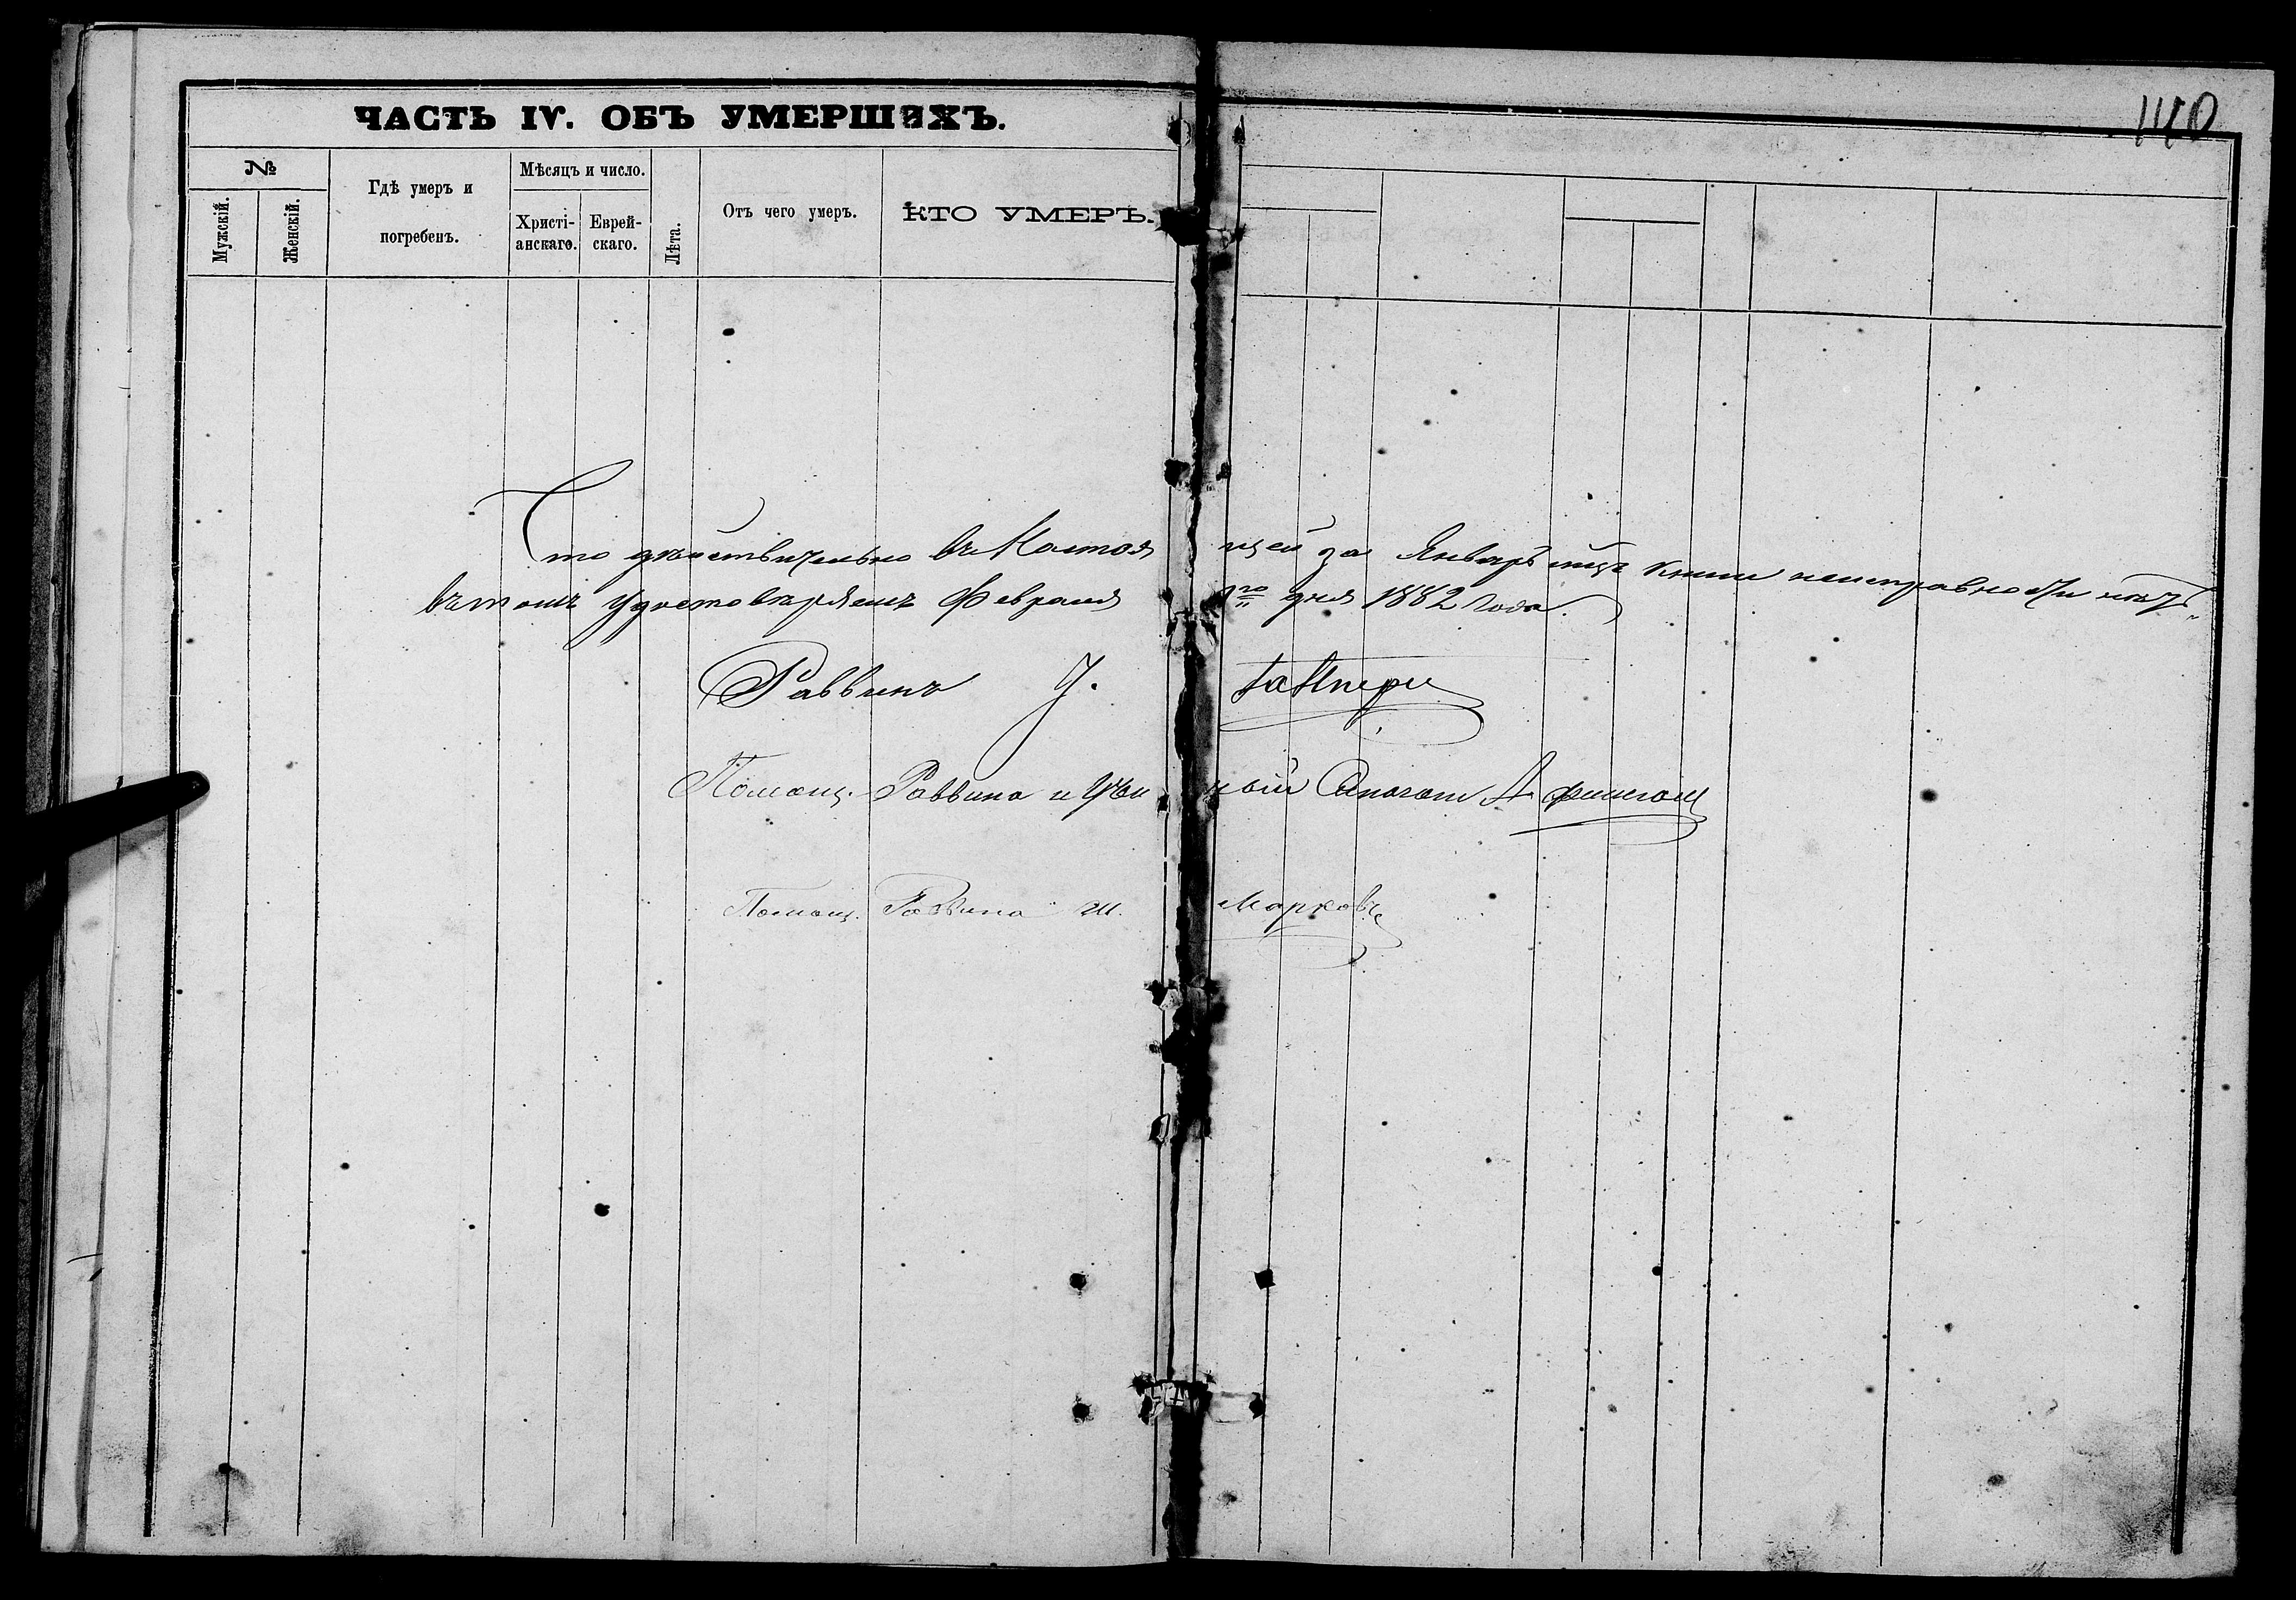 ЧАСТЬ IV. ОБЪ УМЕРШИХЪ.
140
№
Мужскій.
Женскій.
Гдѣ умеръ и
погребенъ.
Мѣсяцъ и число.
Христі-
анскаго.
Еврей-
скаго.
Лѣта.
Отъ чего умеръ.
КТО УМЕРЪ.
Что дѣйствительно въ Настоя щей за Январь мцъ книги неисправности нѣтъ
въ томъ удостовѣряемъ Февраля дня 1882 Года.
Раввинъ
Помощ. Раввина и А.
Помощ. Раввина М. Марковъ